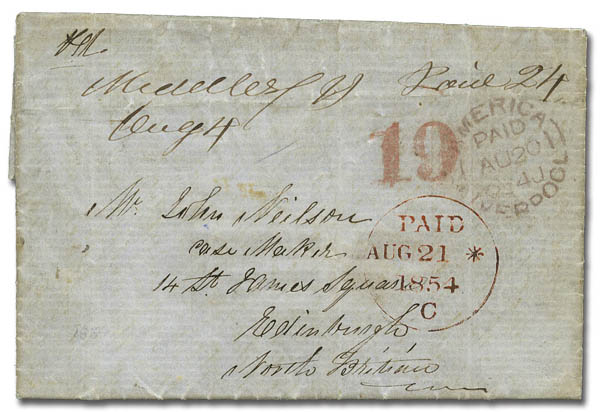 Paid 24
Aug 4
19
AMERICA
PAID
AU 20
LIVERPOOL
Mr. John Neilson
case Maker
14 St. James Square
Edinburgh
North Britian
PAID
AUG 21 *
1854
C